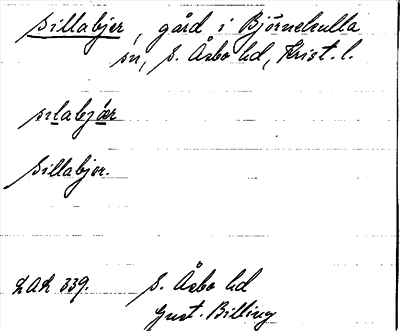 Sillabjer, gård i Björnekulla
sn, S. Åsbo hd, Krist. l.
silabjær
Sillabjer.
LAA 339. S. Åsbo hd
Gust. Billing